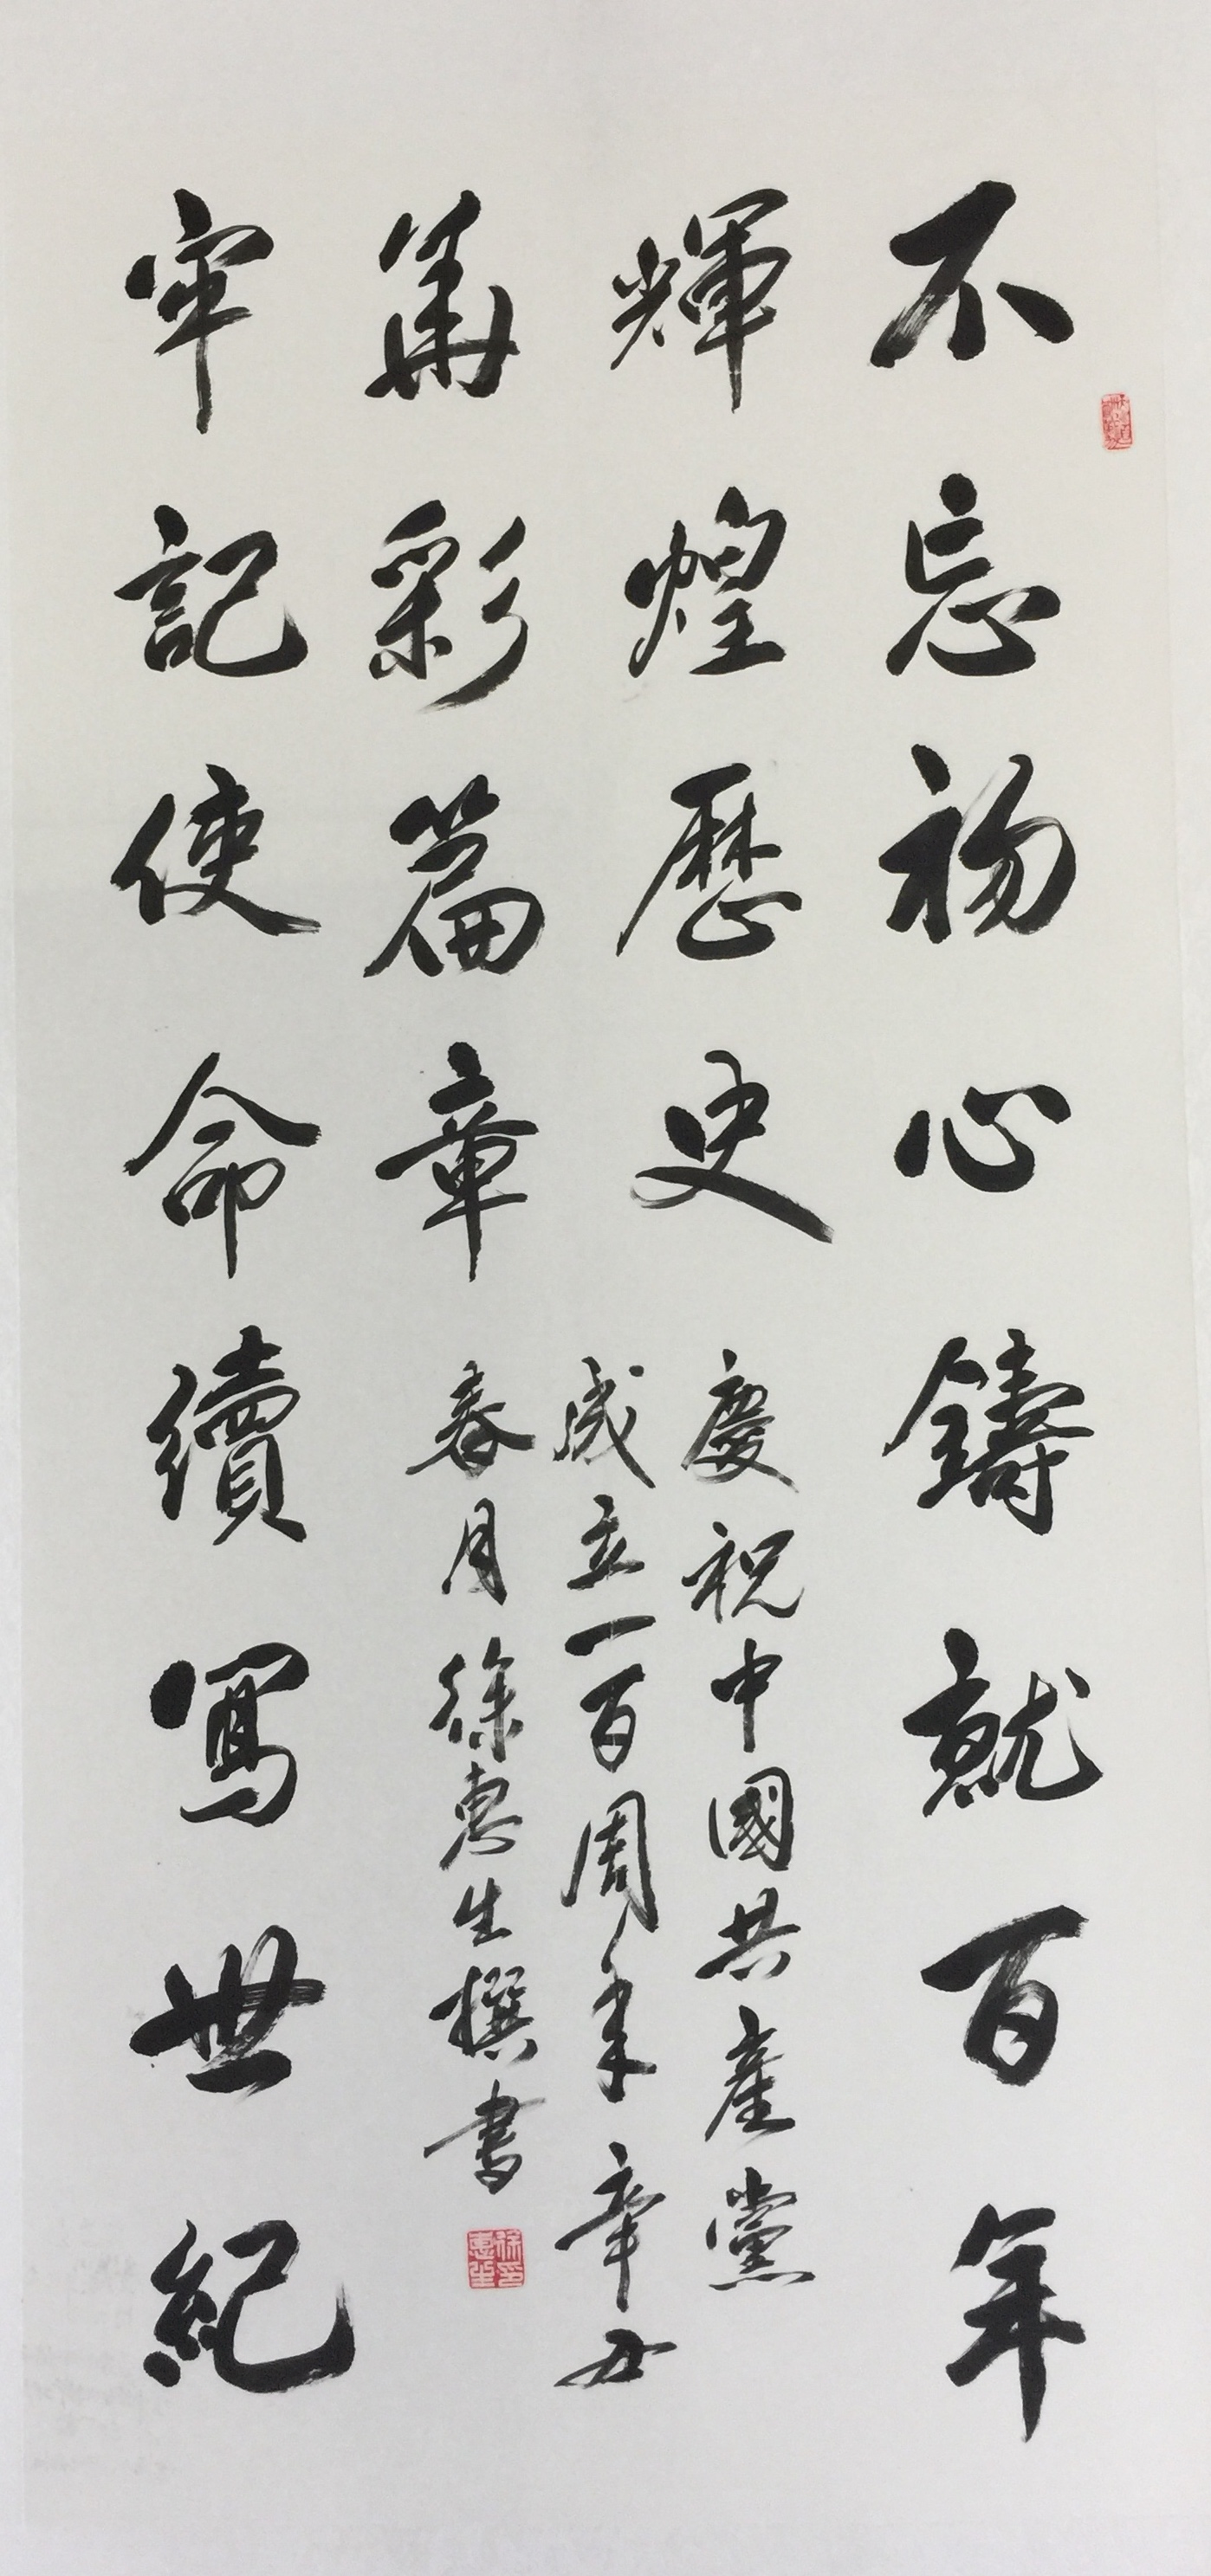 不忘初心鑄就百年
輝煌歷史
牢記使命續寫世紀
華彩篇章
慶祝中國共產黨
成立一百周年辛丑
春月徐惠生撰書
徐惠生印